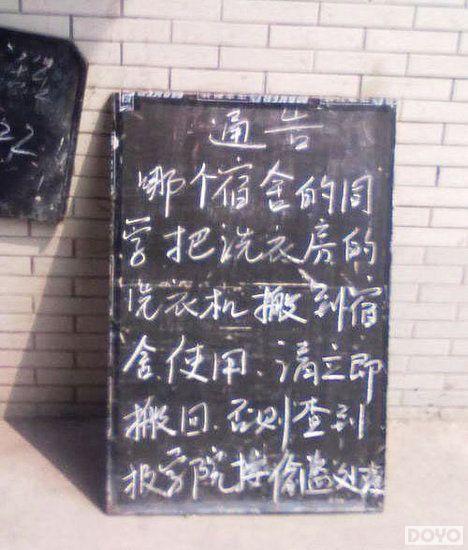 通告
哪个宿舍的同
学把洗衣房的
洗衣机搬到宿
舍使用、请立即
搬回.否则查到
报学院按偷盗处理
22
DOYO